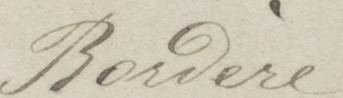 Bordère